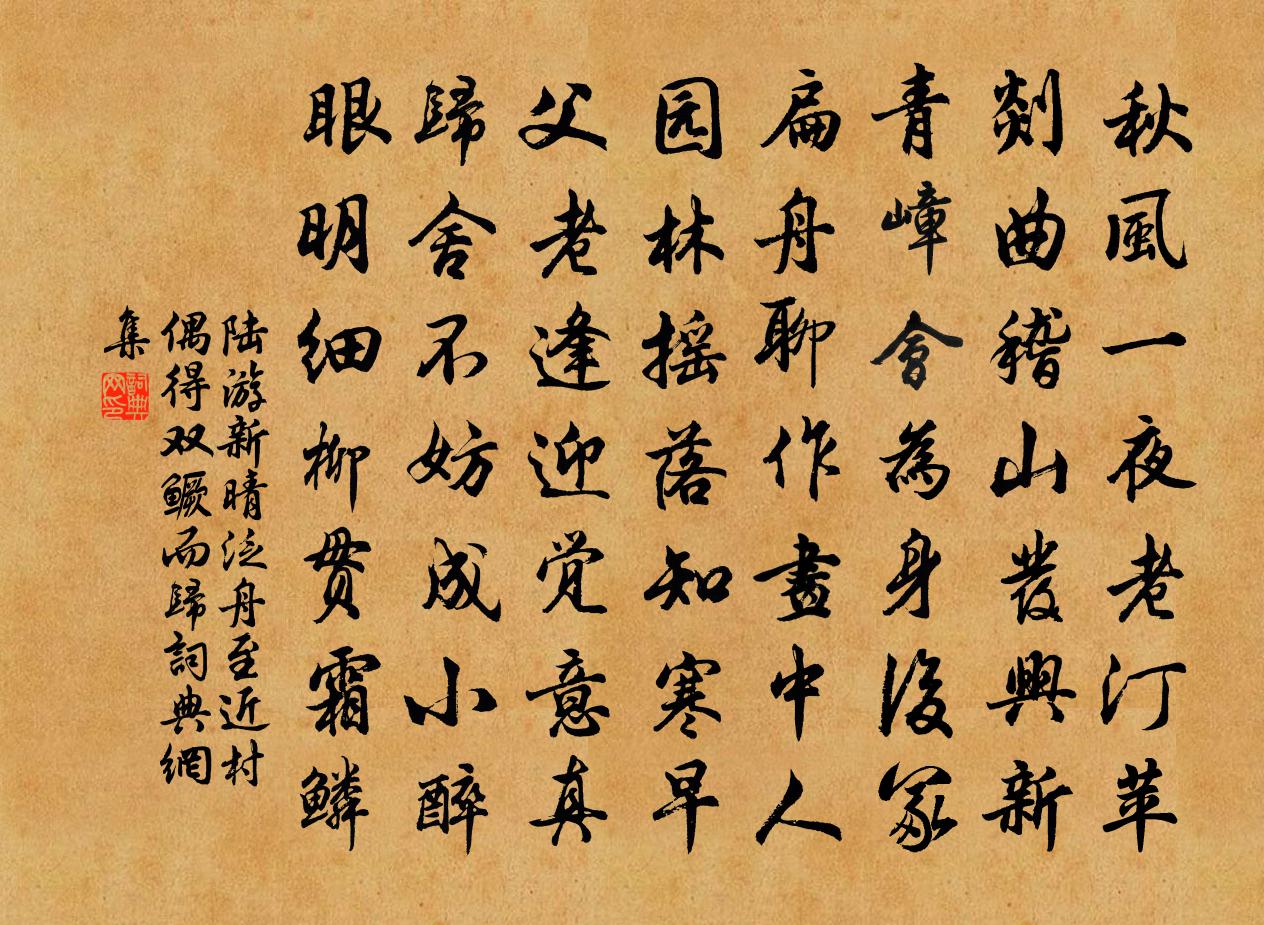 秋風一夜老汀苹
剡曲稽山發興新
青嶂會為身後冢
扁舟聊作畫中人
园林摇落知寒早
父老逢迎觉意真
歸舍不妨成小醉
眼明细柳贯霜鳞
陆游新晴泛舟至近村
偶得双鳜而歸詞典網
集
詞典
网印